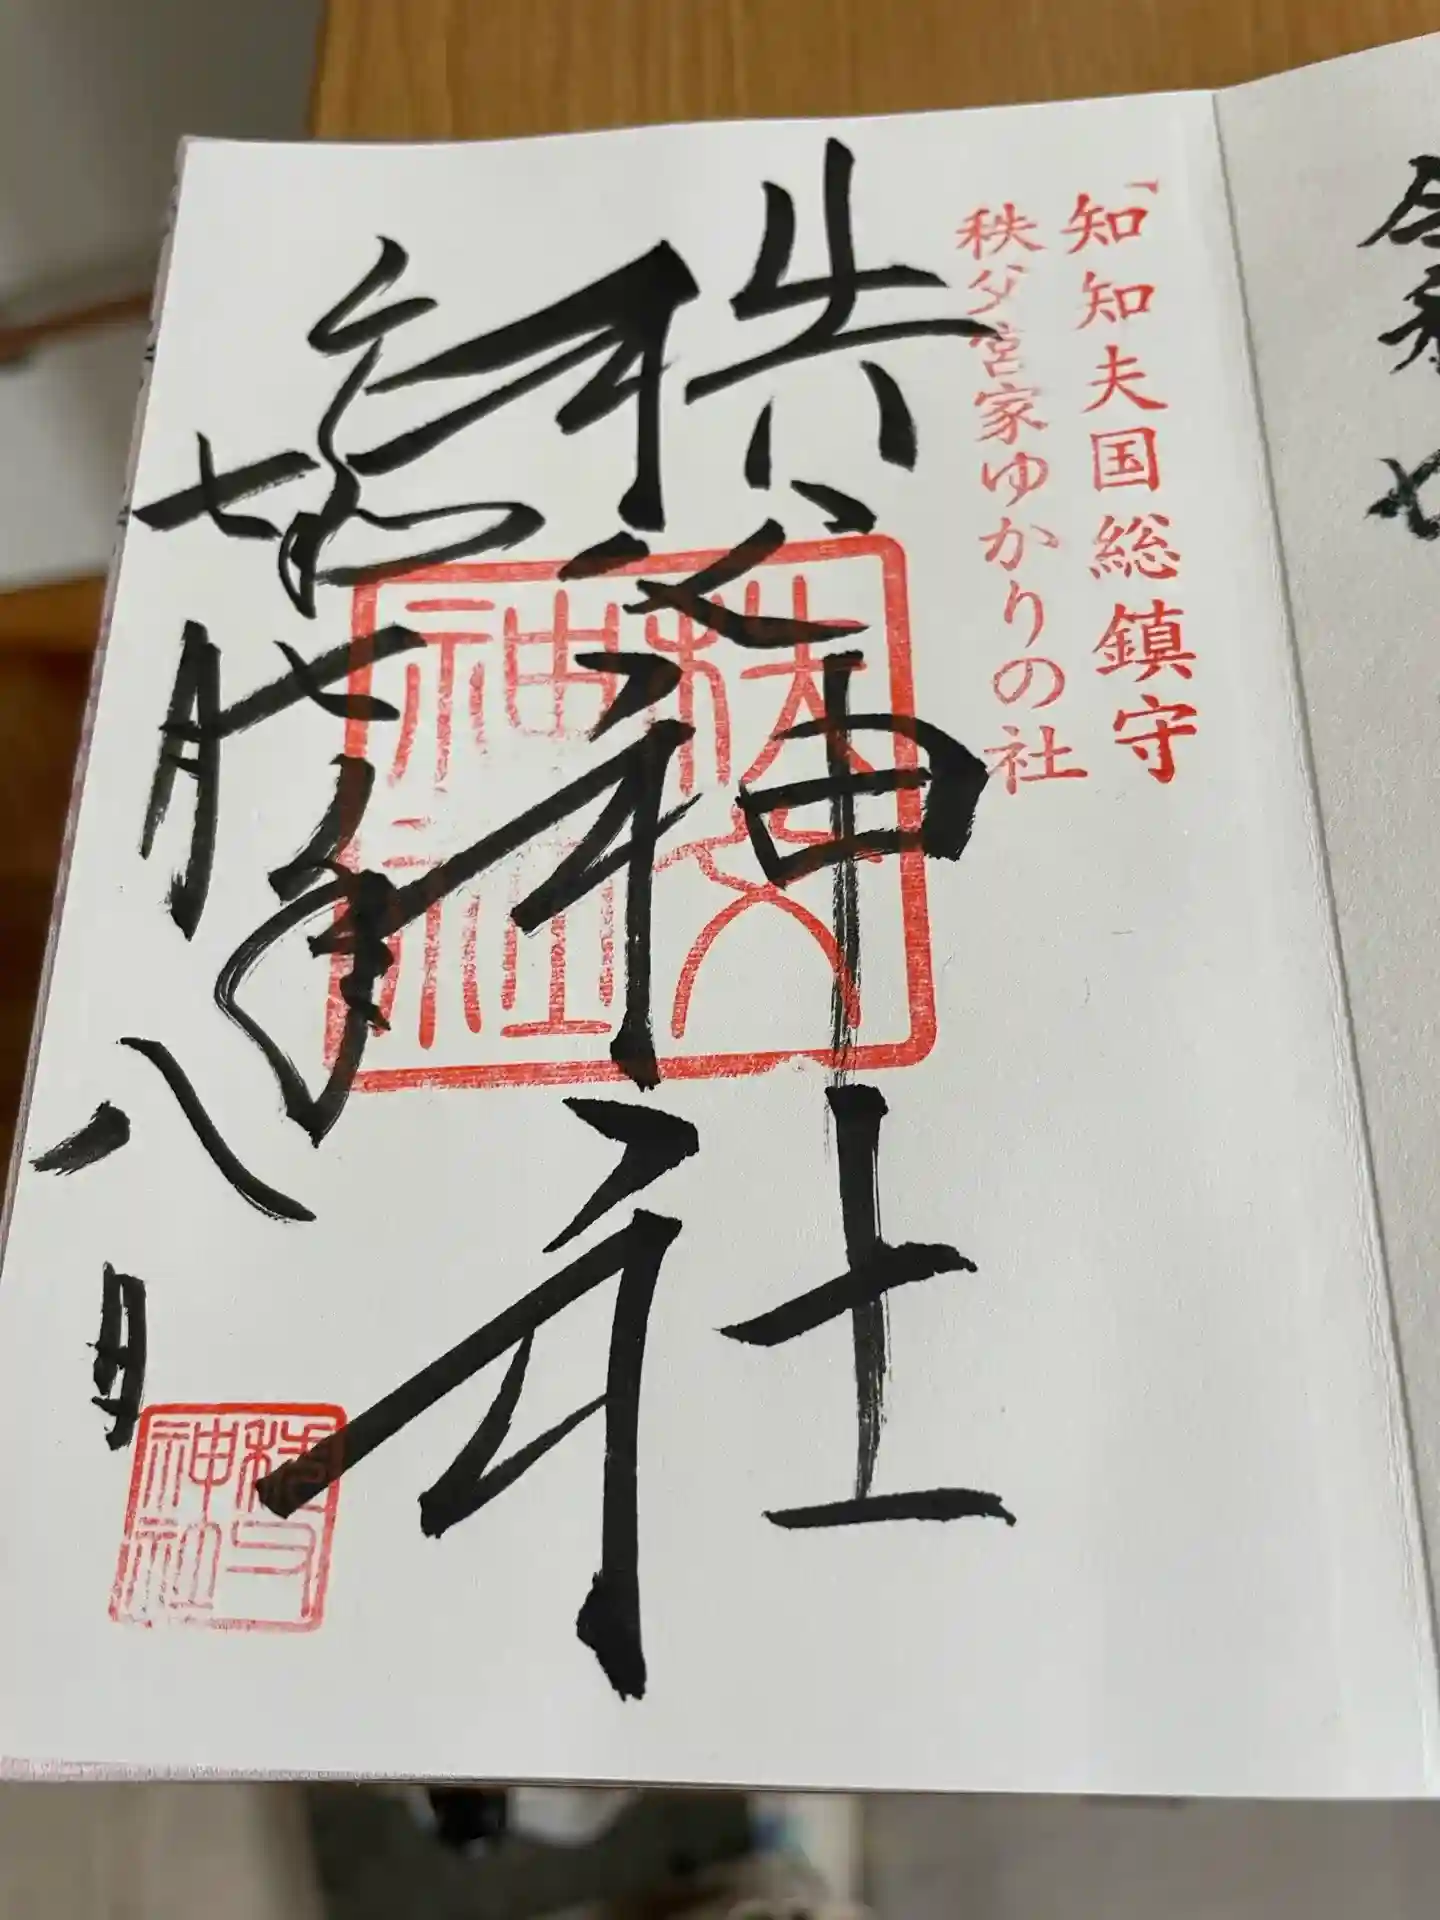 「知知夫国総鎮守
秩父宮家ゆかりの社
秩父神社
秩父神社
令和七年
七月八日
秩父神社
令和七